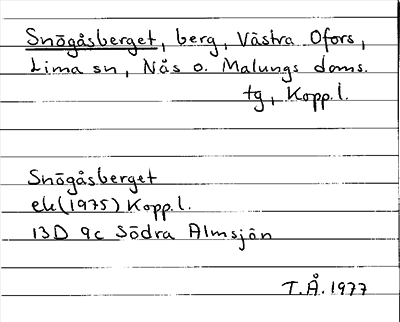 Snögåsberget, berg, Västra Ofors,
Lima sn, Nås o. Malungs doms.
tg, Kopp.l.
Snögåsberget
ek(1975) Kopp.l.
13D 9c Södra Almsjön
T.Å.1977